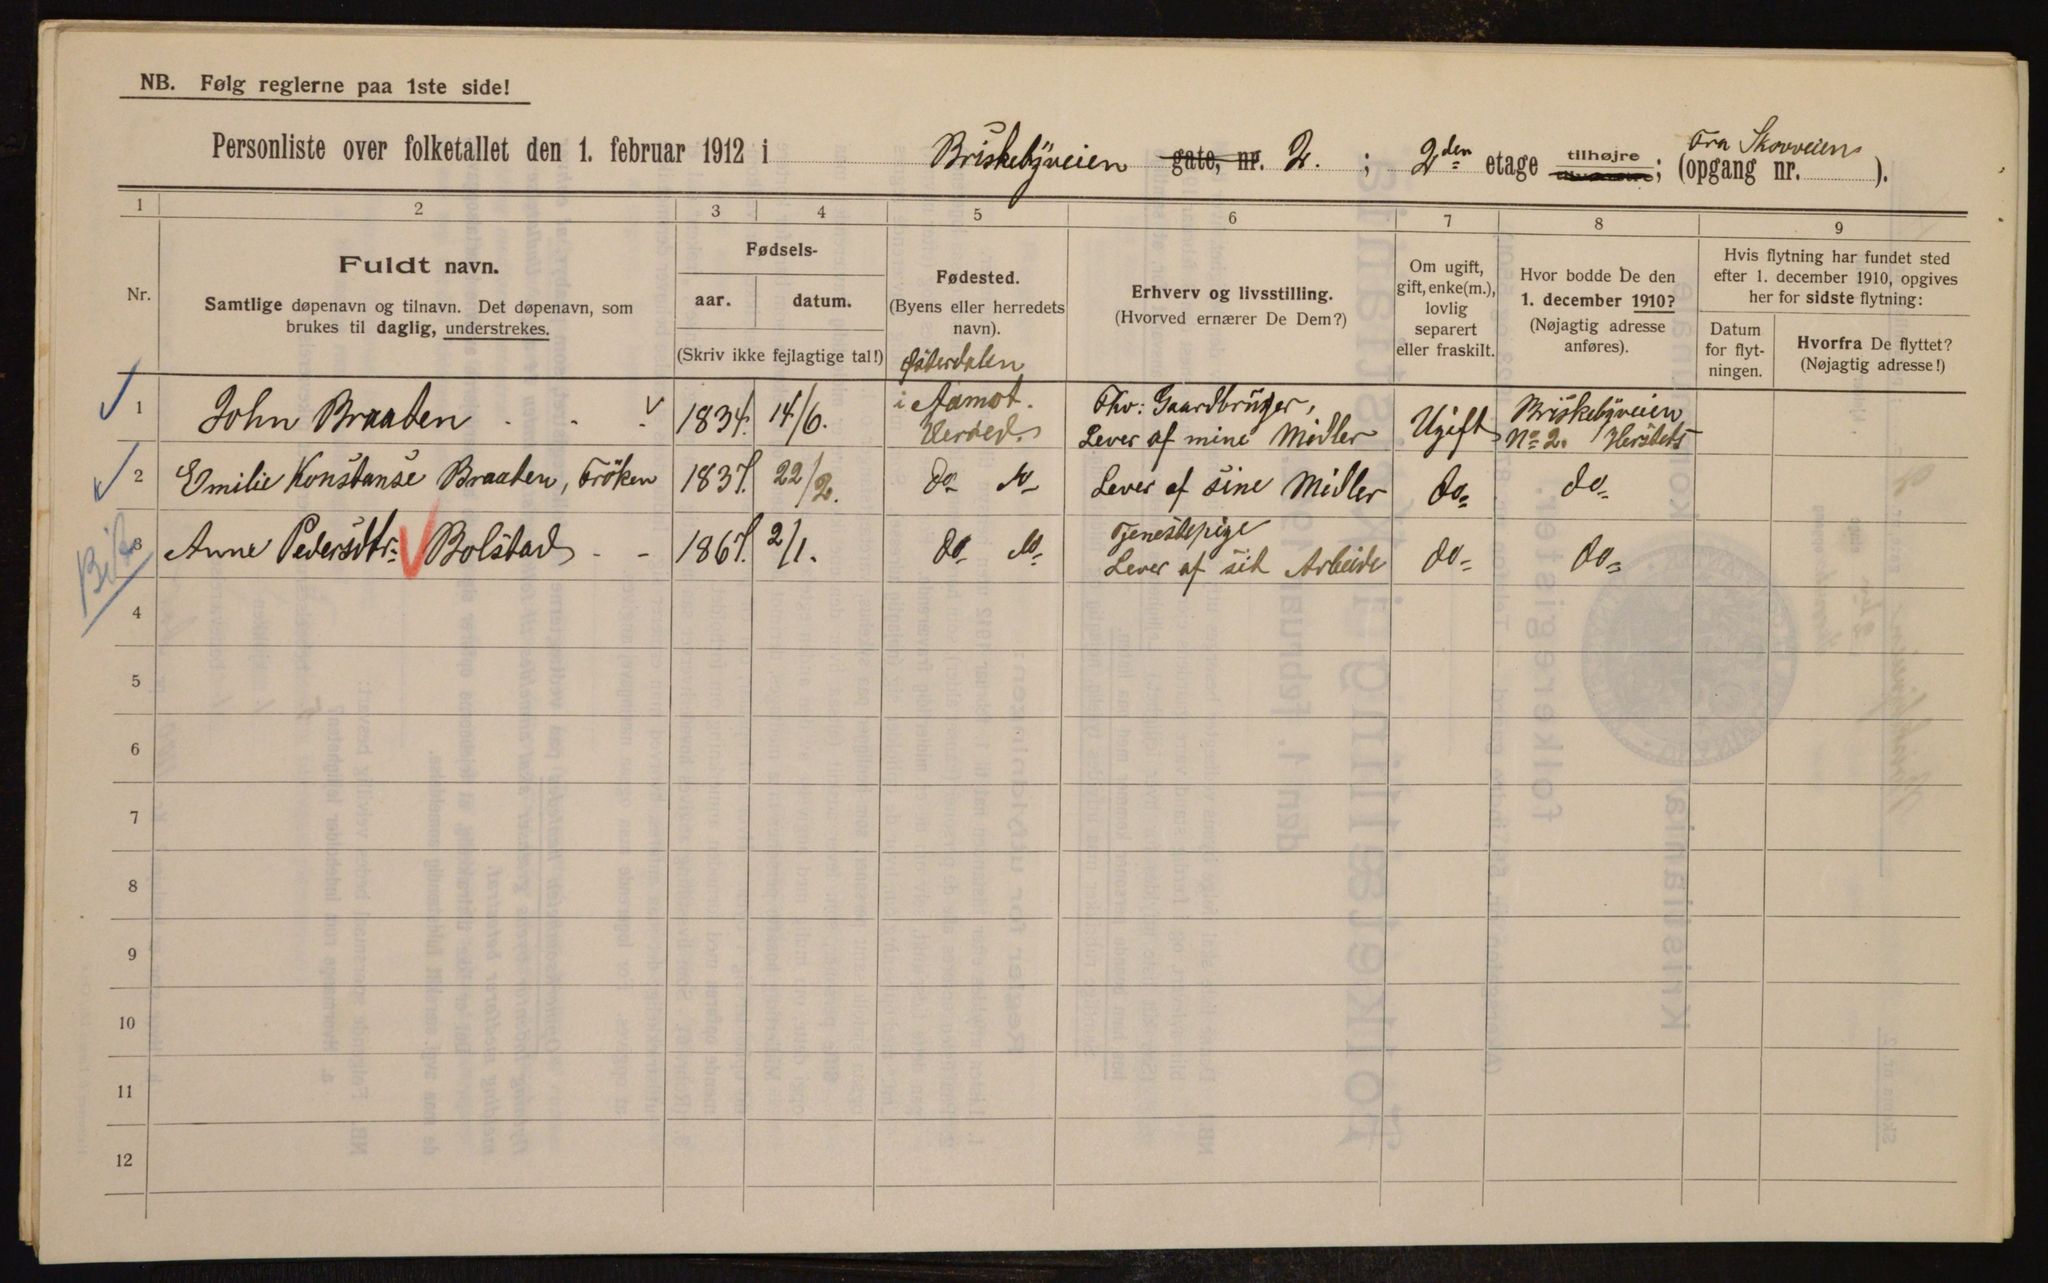 NB. Følg reglerne paa 1ste side!
Personliste over folketallet den 1. februar 1912 i Briskebÿveien gate, nr. 2. ; 2den etage tilhøjre tilvenstre; (opgang nr. Fra Skovveien ).
1 2 3 4 5 6 7 8 9
Nr.
Fuldt navn.
Samtlige døpenavn og tilnavn. Det døpenavn, som
brukes til daglig, understrekes.
Fødsels-
aar. datum.
(Skriv ikke fejlagtige tal!)
Fødested.
(Byens eller herredets
navn).
Erhverv og livsstilling.
(Hvorved ernærer De Dem?)
Om ugift,
gift, enke(m.),
lovlig
separert
eller fraskilt.
Hvor bodde De den
1. december 1910?
(Nøjagtig adresse
anføres).
Hvis flytning har fundet sted
efter 1. december 1910, opgives
her for sidste flytning:
Datum
for flyt-
ningen.
Hvorfra De flyttet?
(Nøjagtig adresse!)
Østerdalen
1 John Braaten 1834. 14/6. i Aamot. Fhv: Gaardbruger, Ugift Briskebÿveien
Lever af mine Midler No 2. Herstets
2 Emilie Konstanse Braaten, Fröken 1837. 22/2. do do Lever af sine Midler do do
3 Anne Pedersdtr: Bolstad 1867. 2/1. do do Tjenestepige do do
Lever af sit Arbeide
4
5
6
7
8
9
10
11
12